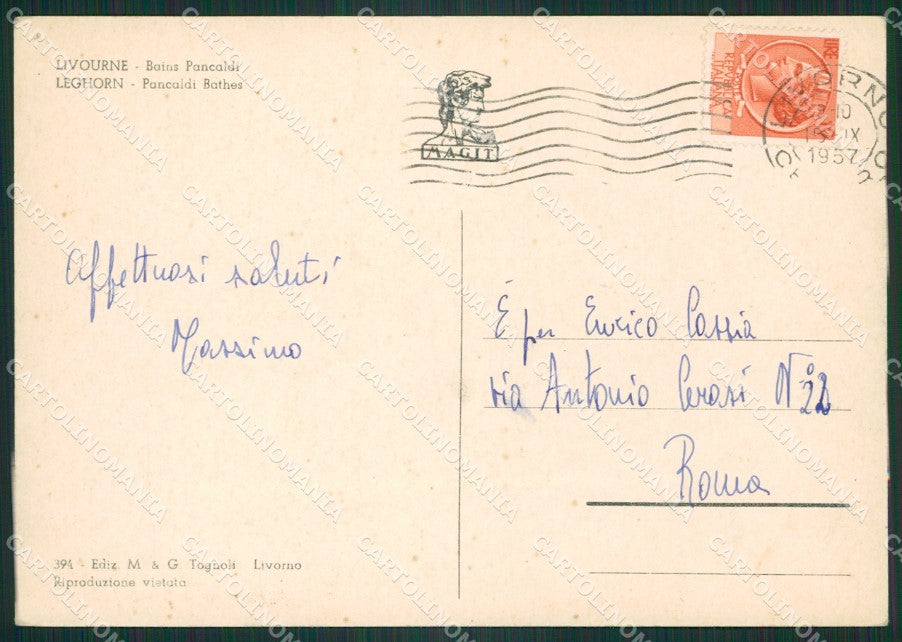 LIVOURNE - Bains Pancaldi
LEGHORN - Pancaldi Bathes
MAGIT
LIRE
10
IX
1957
Affettuosi saluti
Massimo
È per Enrico Cassia
via Antonio Cerasi N° 22
Roma
394 - Ediz. M & G Tognoli Livorno
Riproduzione vietata
CARTOLINOMANIA